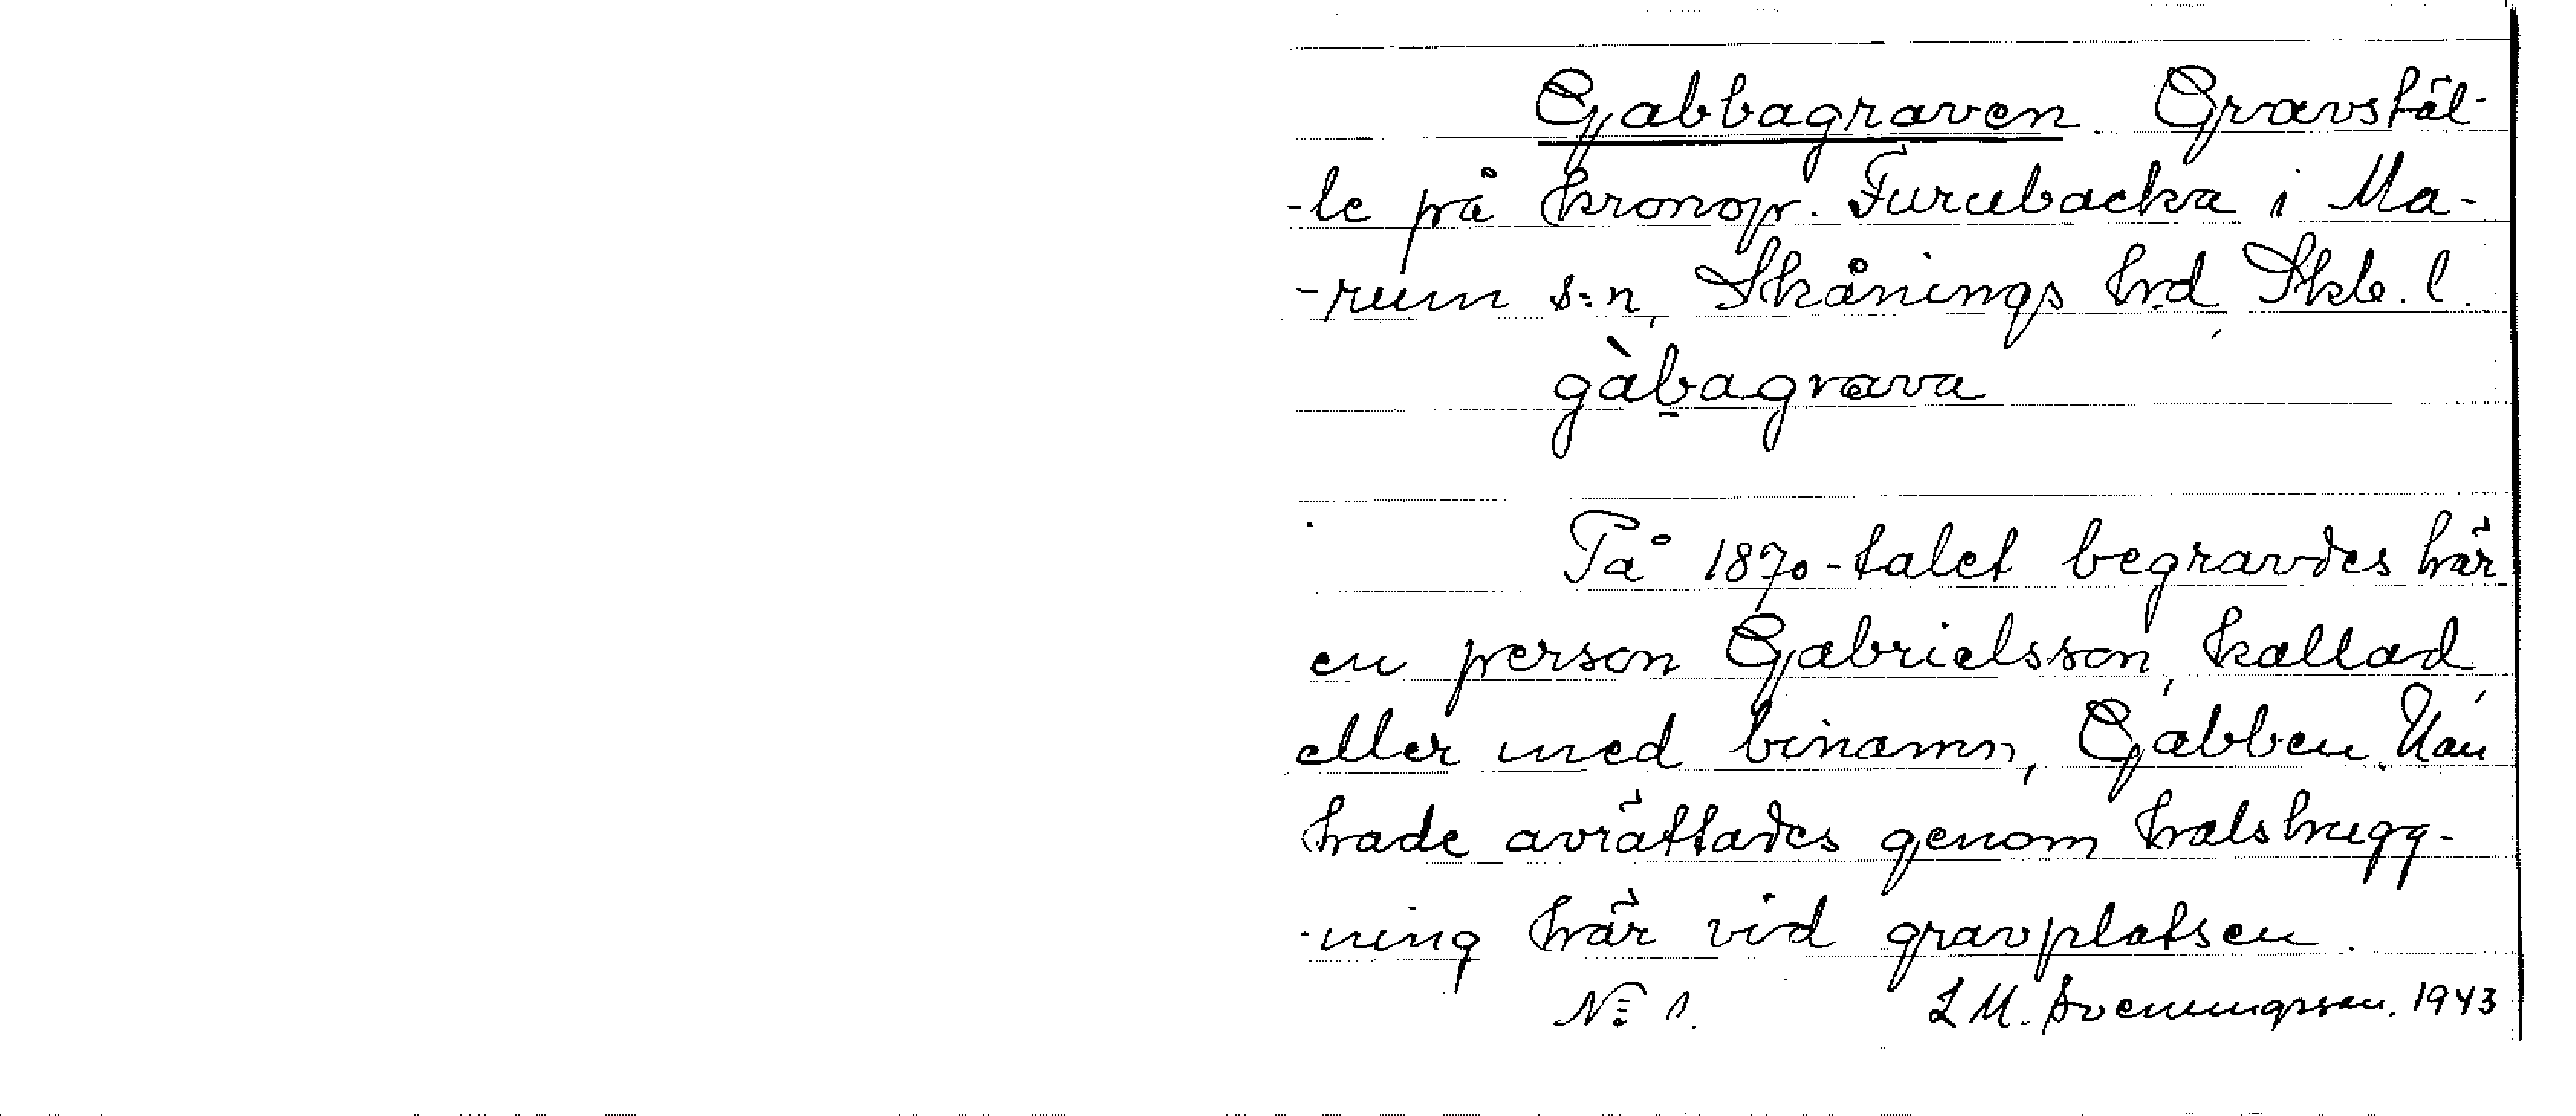 Gabbagraven. Gravstäl-
-le på kronop. Furubacka i Ma-
-rum s:n, Skånings hd, Skb. l.
gàbagrava
På 1870-talet begravdes här
en person Gabrielsson, kallad,
eller med binamn, Gabben. Han
hade avrättades genom halshugg-
-ning här vid gravplatsen.
No 1. L M. Svenungsson. 1943